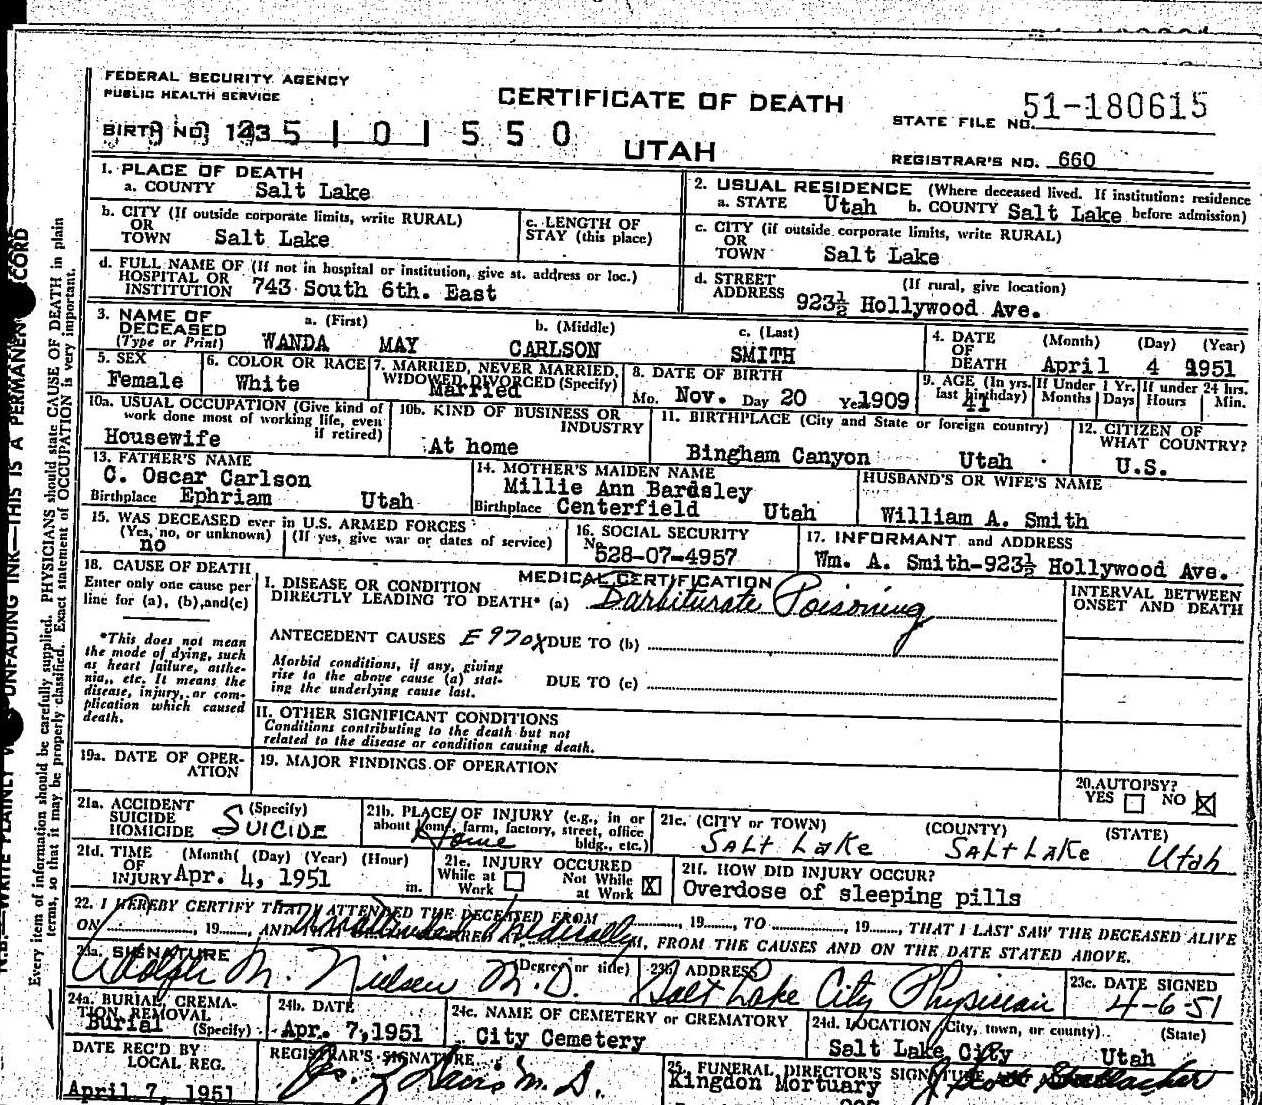 FEDERAL SECURITY AGENCY
PUBLIC HEALTH SERVICE
CERTIFICATE OF DEATH
STATE FILE NO. 51-180615
BIRTH NO. 143 5 1 0 1 5 5 0
UTAH
REGISTRAR'S NO. 660
1. PLACE OF DEATH
a. COUNTY Salt Lake
2. USUAL RESIDENCE (Where deceased lived. If institution: residence before admission)
a. STATE Utah b. COUNTY Salt Lake
b. CITY (If outside corporate limits, write RURAL)
OR
TOWN Salt Lake
c. LENGTH OF
STAY (this place)
c. CITY (if outside corporate limits, write RURAL)
OR
TOWN Salt Lake
d. FULL NAME OF (If not in hospital or institution, give st. address or loc.)
HOSPITAL OR
INSTITUTION 743 South 6th. East
d. STREET (If rural, give location)
ADDRESS 923½ Hollywood Ave.
3. NAME OF DECEASED (Type or Print)
a. (First) b. (Middle) c. (Last)
WANDA MAY CARLSON SMITH
4. DATE OF DEATH (Month) (Day) (Year)
April 4 1951
5. SEX
Female
6. COLOR OR RACE
White
7. MARRIED, NEVER MARRIED,
WIDOWED DIVORCED (Specify)
Married
8. DATE OF BIRTH
Mo. Nov. Day 20 Ye 1909
9. AGE (In yrs. last birthday)
41
If Under 1 Yr.
Months Days
If under 24 hrs.
Hours Min.
10a. USUAL OCCUPATION (Give kind of
work done most of working life, even
if retired)
Housewife
10b. KIND OF BUSINESS OR
INDUSTRY
At home
11. BIRTHPLACE (City and State or foreign country)
Bingham Canyon Utah
12. CITIZEN OF
WHAT COUNTRY?
U.S.
13. FATHER'S NAME
C. Oscar Carlson
Birthplace Ephriam Utah
14. MOTHER'S MAIDEN NAME
Millie Ann Bardsley
Birthplace Centerfield Utah
HUSBAND'S OR WIFE'S NAME
William A. Smith
15. WAS DECEASED ever in U.S. ARMED FORCES
(Yes, no, or unknown) (If yes, give war or dates of service)
no
16. SOCIAL SECURITY
No. 528-07-4957
17. INFORMANT and ADDRESS
Wm. A. Smith-923½ Hollywood Ave.
18. CAUSE OF DEATH
Enter only one cause per
line for (a), (b), and (c)
*This does not mean
the mode of dying, such
as heart failure, asthe-
nia, etc. It means the
disease, injury, or com-
plication which caused
death.
MEDICAL CERTIFICATION
I. DISEASE OR CONDITION
DIRECTLY LEADING TO DEATH* (a) Barbiturate Poisoning
INTERVAL BETWEEN
ONSET AND DEATH
ANTECEDENT CAUSES E970X DUE TO (b)
Morbid conditions, if any, giving
rise to the above cause (a) stat-
ing the underlying cause last.
DUE TO (c)
II. OTHER SIGNIFICANT CONDITIONS
Conditions contributing to the death but not
related to the disease or condition causing death.
19a. DATE OF OPER-
ATION
19. MAJOR FINDINGS OF OPERATION
20. AUTOPSY?
YES NO X
21a. ACCIDENT (Specify)
SUICIDE
HOMICIDE
SUICIDE
21b. PLACE OF INJURY (e.g., in or
about home, farm, factory, street, office
bldg., etc.)
Home
21c. (CITY or TOWN) (COUNTY) (STATE)
SALT LAKE SALT LAKE Utah
21d. TIME (Month) (Day) (Year) (Hour)
OF
INJURY Apr. 4, 1951 m.
21e. INJURY OCCURED
While at Work Not While at Work X
21f. HOW DID INJURY OCCUR?
Overdose of sleeping pills
22. I HEREBY CERTIFY THAT I ATTENDED THE DECEASED FROM , 19 , TO , 19 , THAT I LAST SAW THE DECEASED ALIVE
ON , 19 , AND , FROM THE CAUSES AND ON THE DATE STATED ABOVE.
23a. SIGNATURE (Degree or title)
Adolph M. Nielsen M.D.
23b. ADDRESS
Salt Lake City Physician
23c. DATE SIGNED
4-6-51
24a. BURIAL, CREMA-
TION, REMOVAL
(Specify)
Burial
24b. DATE
Apr. 7, 1951
24c. NAME OF CEMETERY or CREMATORY
City Cemetery
24d. LOCATION (City, town, or county) (State)
Salt Lake City Utah
DATE REC'D BY
LOCAL REG.
April 7, 1951
REGISTRAR'S SIGNATURE
25. FUNERAL DIRECTOR'S SIGNATURE
Kingdon Mortuary
WRITE PLAINLY UNFADING INK—THIS IS A PERMANENT RECORD
Every item of information should be carefully supplied. PHYSICIANS should state CAUSE OF DEATH in plain
terms, so that it may be properly classified. Exact statement of OCCUPATION is very important.